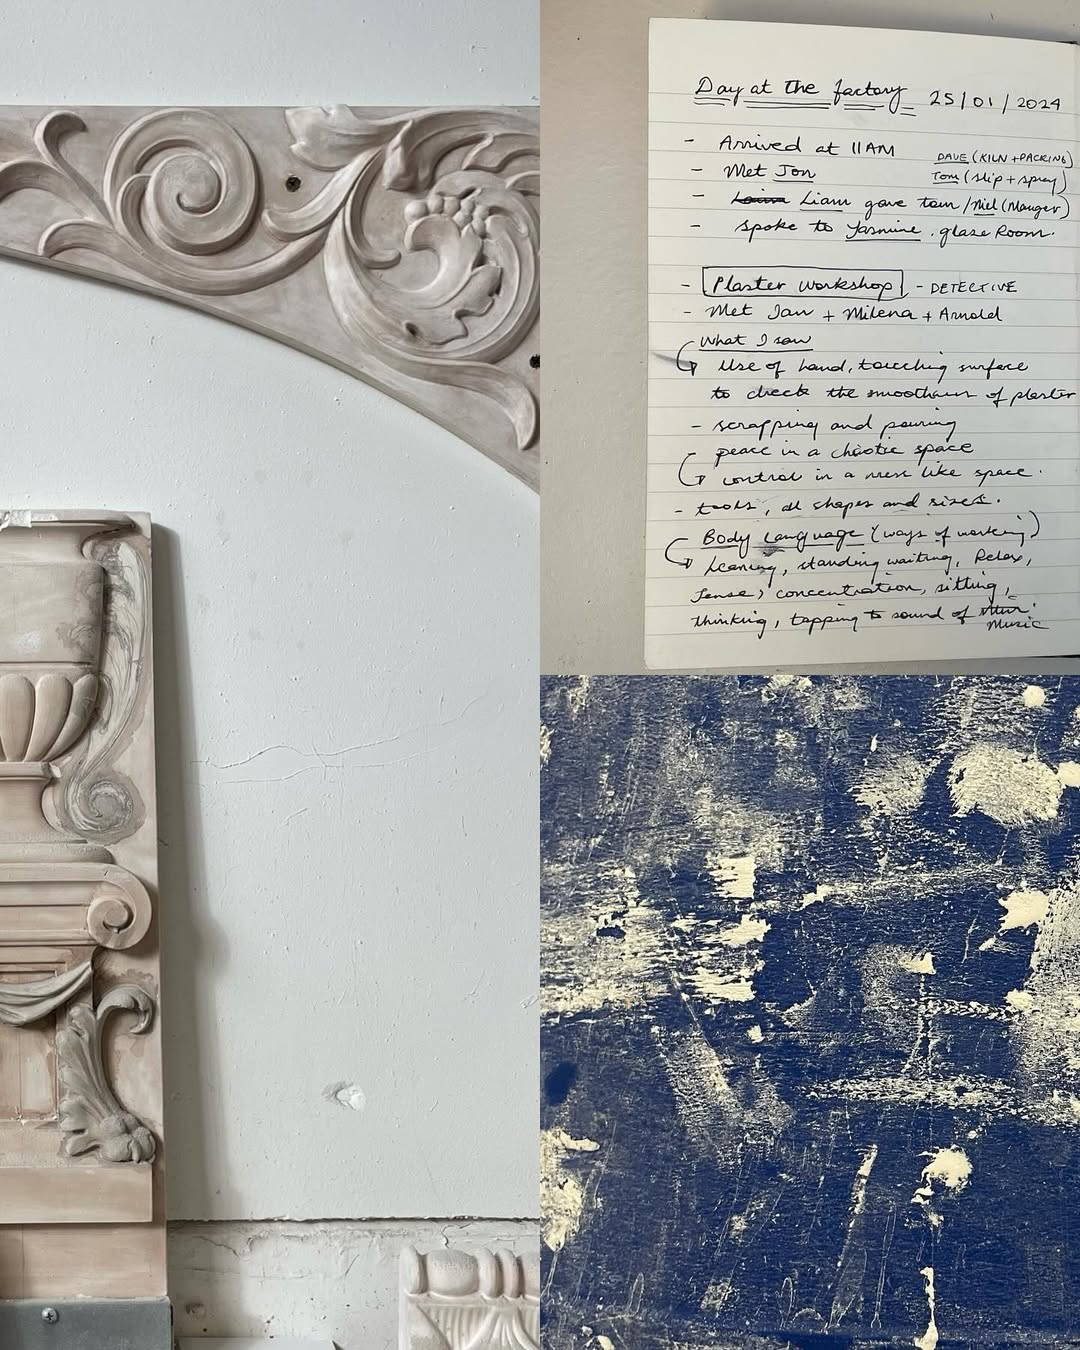 Day at the factory 25/01/2024
- Arrived at 11AM
DAVE (KILN + PACKING)
- Met Jon
Tom (slip + spray)
- Liam gave tour / Niel (Manger)
- spoke to Yasmine. glaze Room.
- Plaster workshop - DETECTIVE
- Met Ian + Milena + Arnold
What I saw
Use of hand, touching surface
to check the smoothness of plaster
- scrapping and pouring
peace in a chaotic space
control in a mess like space.
- tools, all shapes and sizes.
Body Language (ways of working)
Leaning, standing waiting, Relax,
Tense, concentration, sitting,
thinking, tapping to sound of
Music